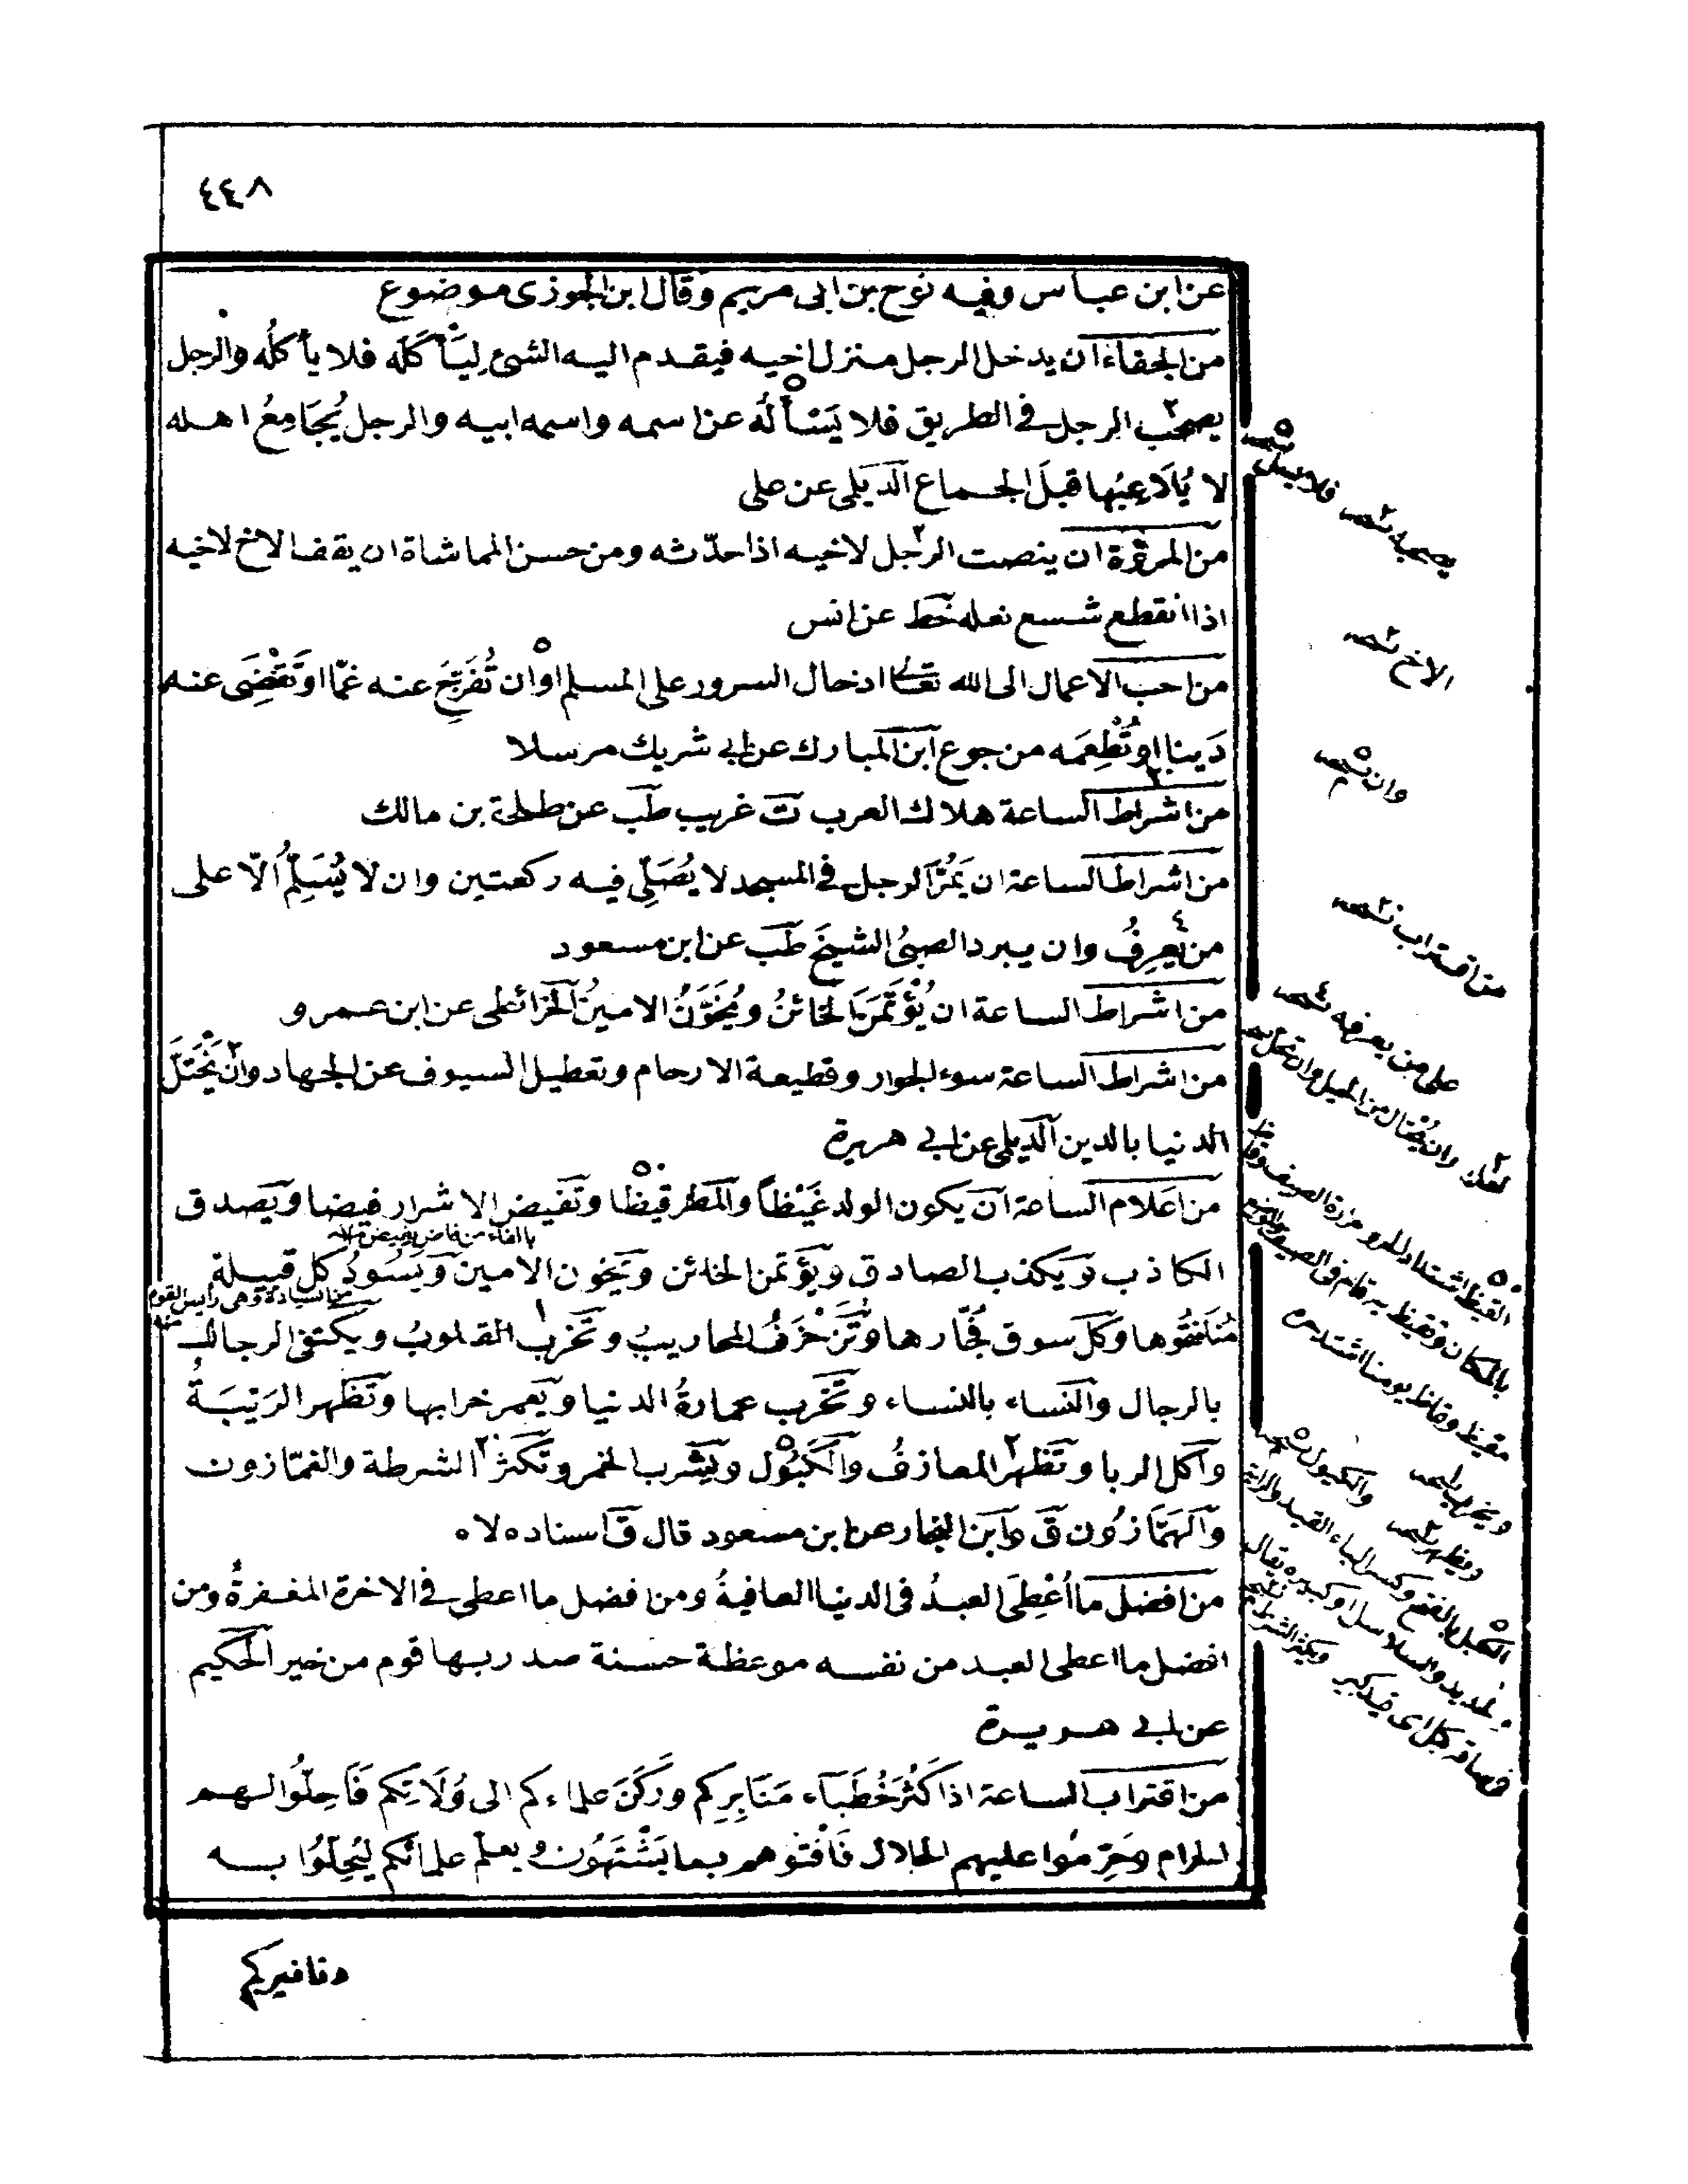 ٤٤٨
عن ابن عباس وفيه نوح بن ابى مريم وقال ابن الجوزى موضوع
من الجفاء ان يدخل الرجل منزل اخيه فيقدم اليه الشئ ليأكله فلا يأكله والرجل
يصحب الرجل فى الطريق فلا يسأله عن اسمه واسم ابيه والرجل يجامع اهله
لا يلاعبها قبل الجماع الديلمى عن على
من المروة ان ينصت الرجل لاخيه اذا حدثه ومن حسن المماشاة ان يقف الاخ لاخيه
اذا انقطع شسع نعله خط عن انس
من احب الاعمال الى الله تعالى ادخال السرور على المسلم او ان تفرج عنه غما او تقضى عنه
دينا او تطعمه من جوع ابن المبارك عن ابى شريك مرسلا
من اشراط الساعة هلاك العرب ت غريب طب عن طلحة بن مالك
من اشراط الساعة ان يمر الرجل فى المسجد لا يصلى فيه ركعتين وان لا يسلم الا على
من يعرف وان يبرد الصبى الشيخ طب عن ابن مسعود
من اشراط الساعة ان يؤتمن الخائن ويخون الامين الخرائطى عن ابن عمرو
من اشراط الساعة سوء الجوار وقطيعة الارحام وتعطيل السيوف عن الجهاد وان يختل
الدنيا بالدين الديلمى عن ابى هريرة
من اعلام الساعة ان يكون الولد غيظا والمطر قيظا وتفيض الاشرار فيضا ويصدق
الكاذب ويكذب الصادق ويؤتمن الخائن ويخون الامين ويسود كل قبيلة
منافقوها وكل سوق فجارها وتزخرف المحاريب وتخرب القلوب ويكتفى الرجال
بالرجال والنساء بالنساء وتخرب عمارة الدنيا ويعمر خرابها وتظهر الريبة
وآكل الربا وتظهر المعازف والكبول ويشرب الخمر وتكثر الشرطة والغمازون
والهمازون ق وابن النجار عن ابن مسعود قال ق اسناده لا ه
من افضل ما اعطى العبد فى الدنيا العافية ومن افضل ما اعطى فى الاخرة المغفرة ومن
افضل ما اعطى العبد من نفسه موعظة حسنة صدر بها قوم من خير الحكيم
عن ابى هريرة
من اقتراب الساعة اذا كثر خطباء منابركم وركن علماءكم الى ولاتكم فاحلوا لهم
الحرام وحرموا عليهم الحلال فافتوهم بما يشتهون و يعلم علمائكم ليحلوا به
دنانيركم
يصحبه نسخه
الاخ نسخه
وان نسخه م
من اقتراب نسخه
على من يعرفه نسخه